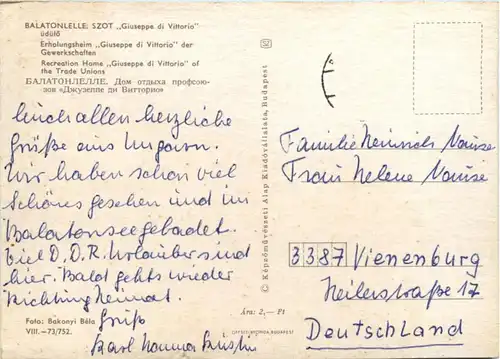 BALATONLELLE: SZOT „Giuseppe di Vittorio”
üdülő
Erholungsheim „Giuseppe di Vittorio” der
Gewerkschaften
Recreation Home „Giuseppe di Vittorio” of
the Trade Unions
БАЛАТОНЛЕЛЛЕ. Дом отдыха профсою-
зов «Джузеппе ди Витторио»
Euch allen herzliche
Grüße aus Ungarn.
Wir haben schon viel
Schönes gesehen und im
Balatonsee gebadet.
Viel D.D.R. Urlauber sind
hier. Bald gehts wieder
Richtung Heimat.
Gruß
Karl
Foto: Bakonyi Béla
VIII.—73/752.
© Képzőművészeti Alap Kiadóvállalata, Budapest
Ára: 2,— Ft
Familie Heinrich
Frau Helene
3387 Vienenburg
17
Deutschland